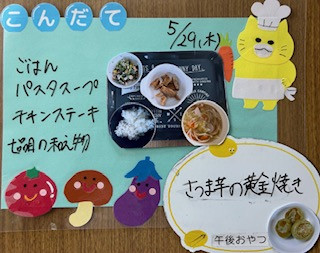 こんだて
5/29(木)
ごはん
パスタスープ
チキンステーキ
の和え物
さつま芋の黄金焼き
午後おやつ